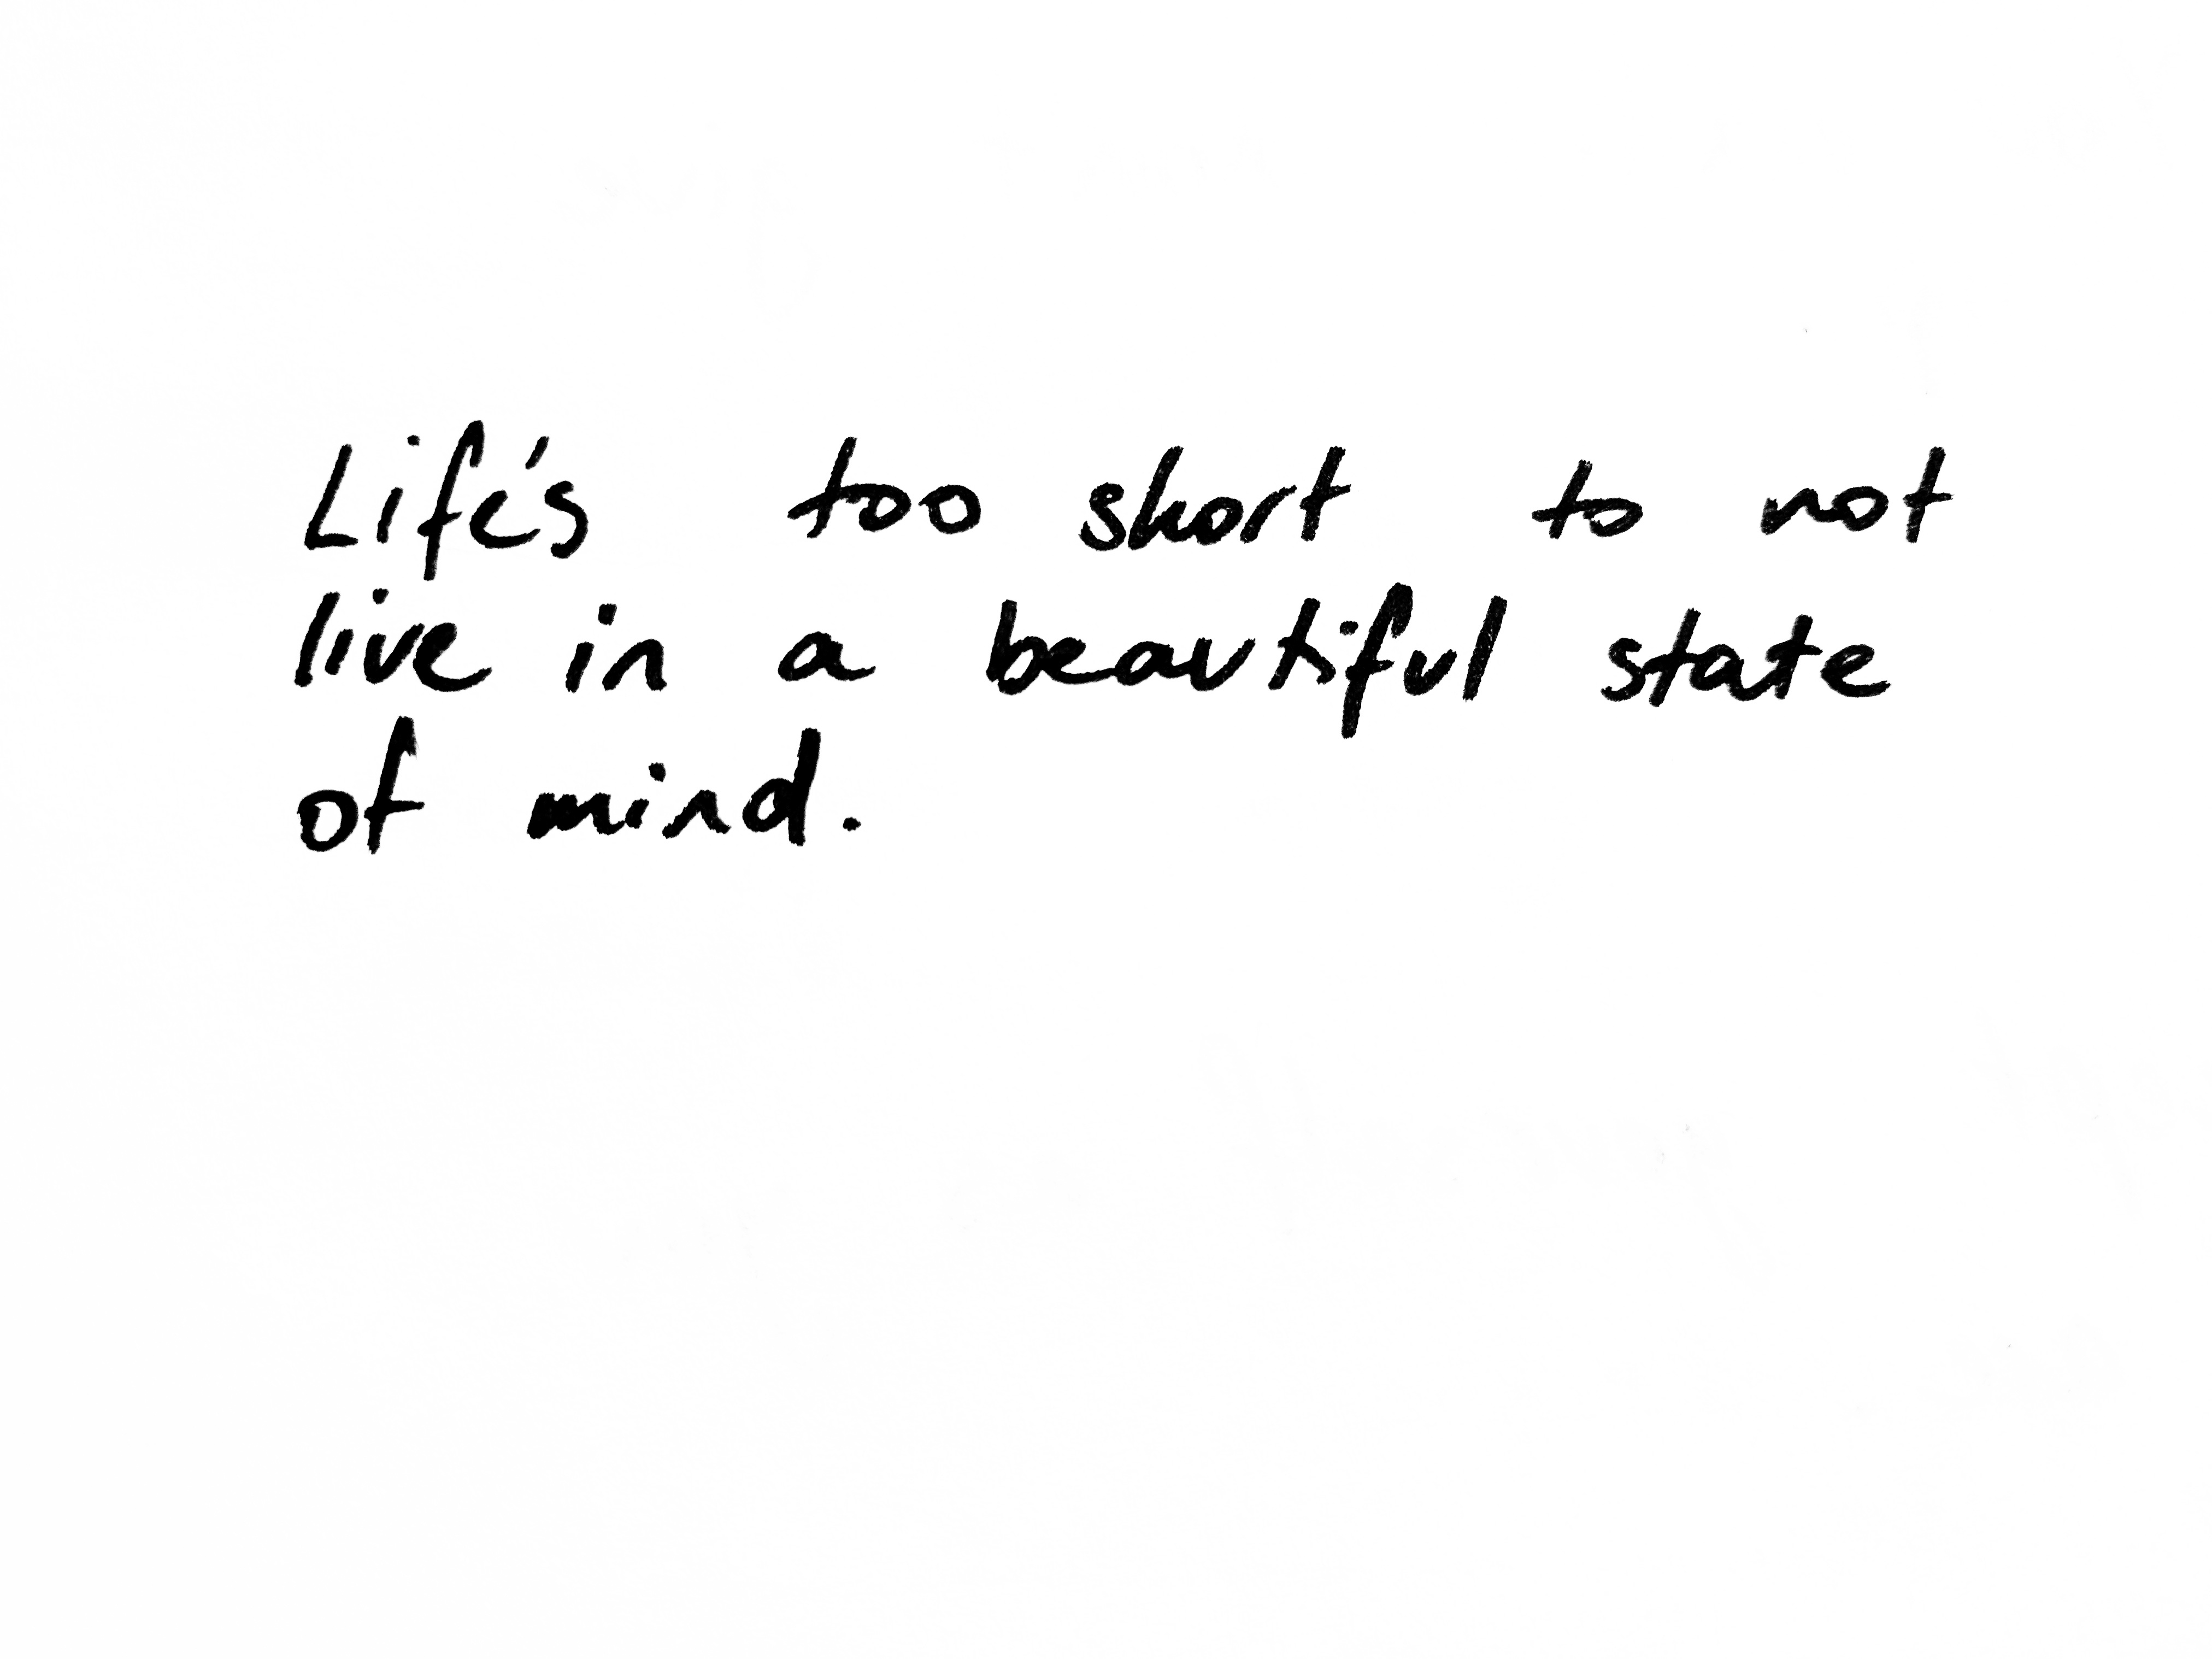 Life's too short to not
live in a beautiful state
of mind.